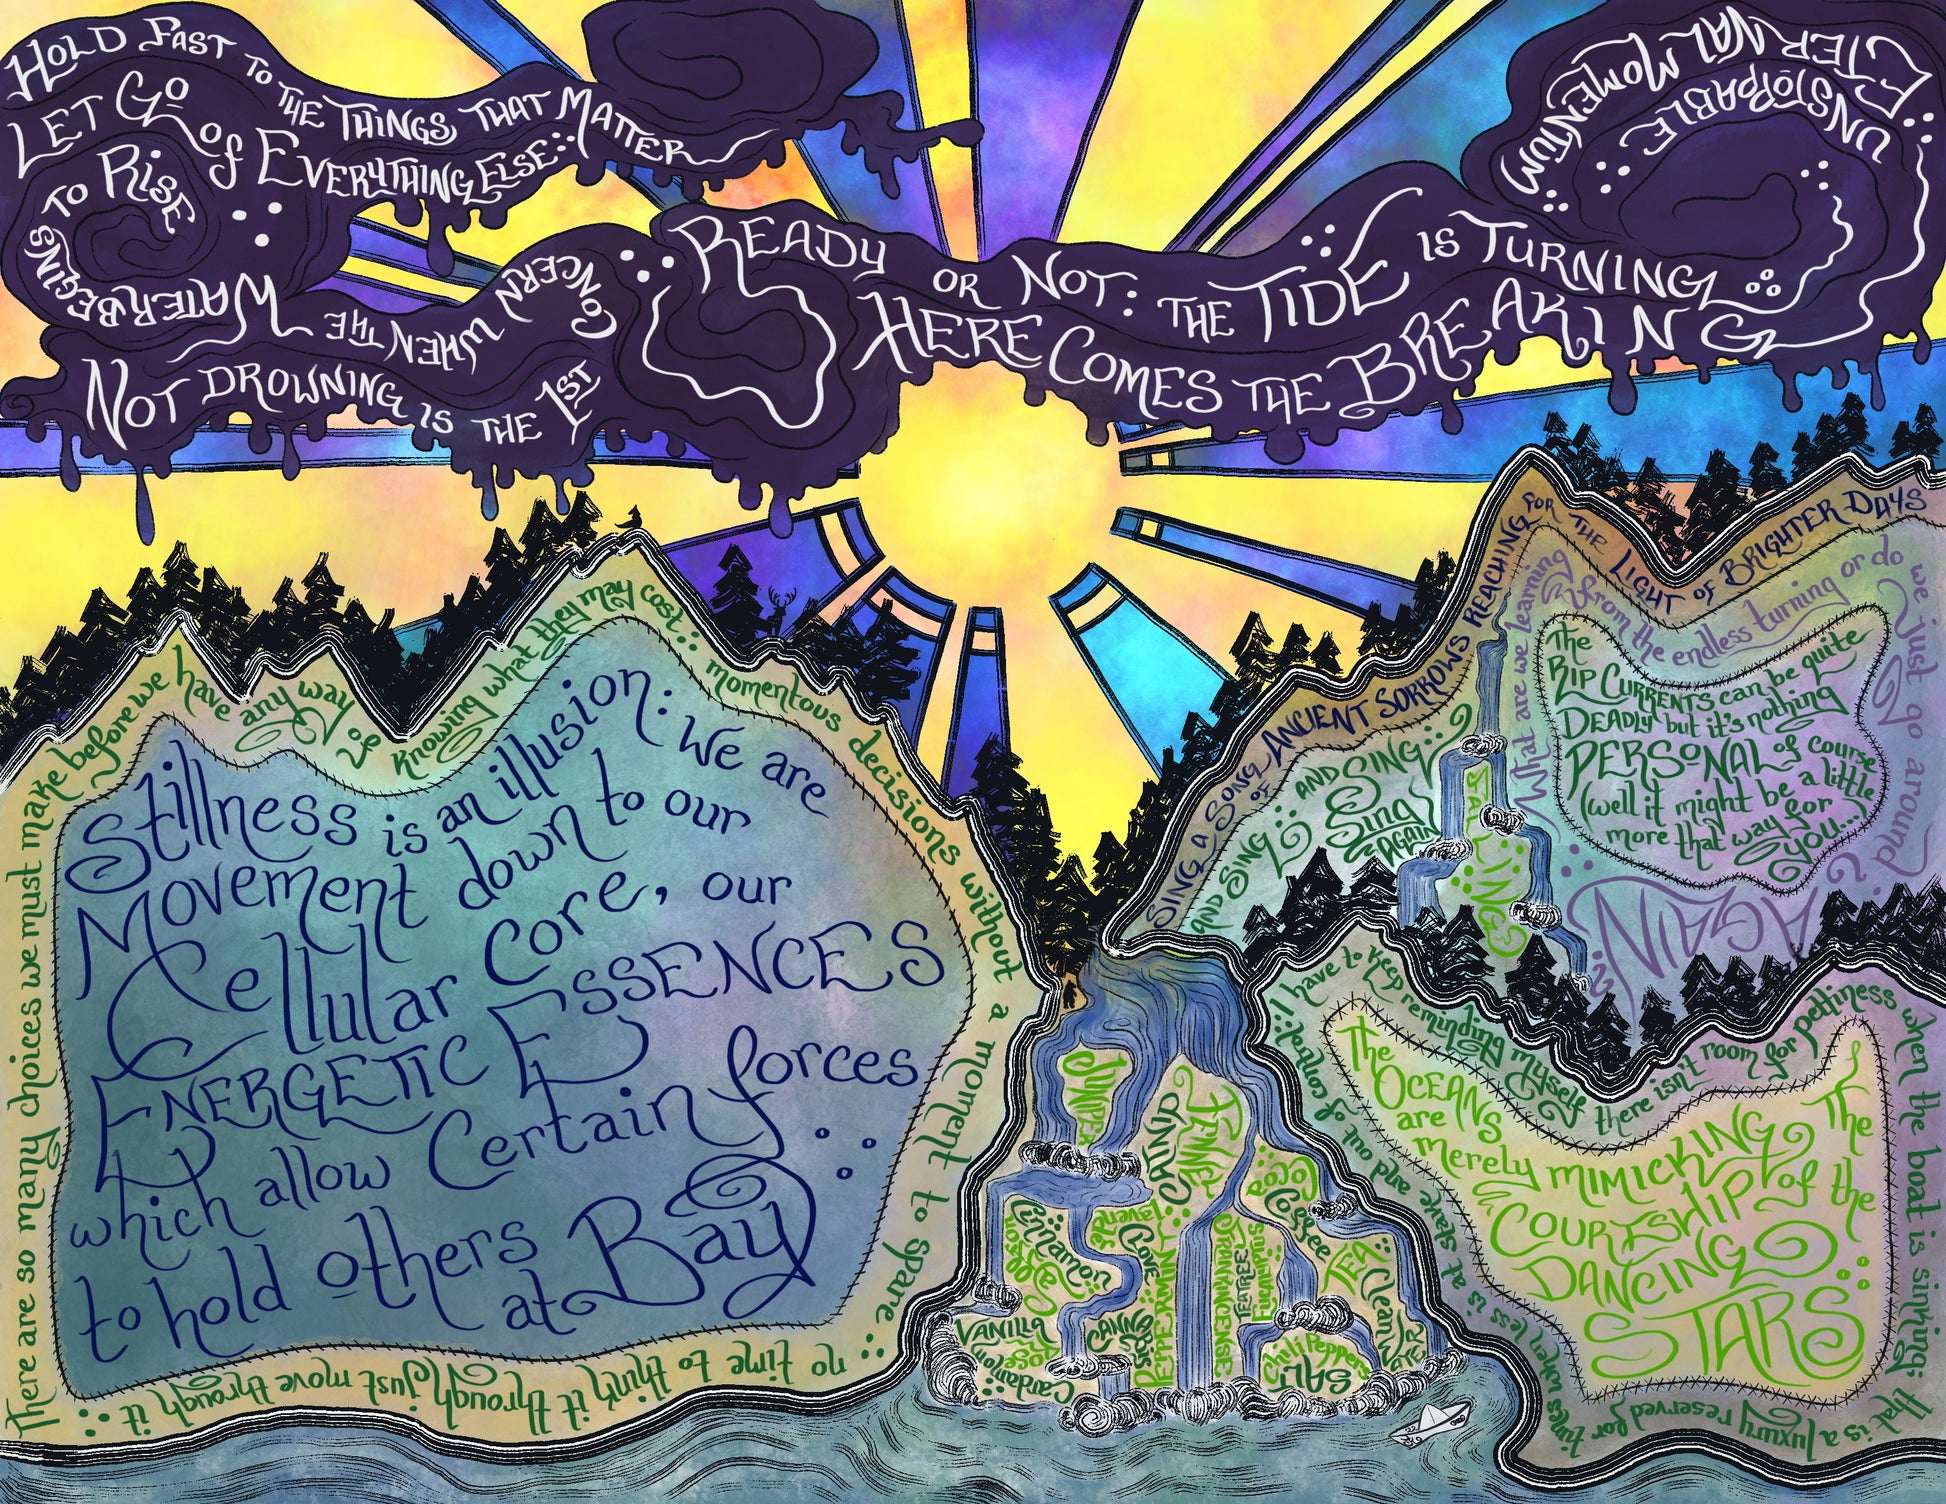 HOLD FAST TO THE THINGS THAT MATTER
LET GO of EVERYTHING ELSE:
NOT DROWNING IS THE 1ST
CONCERN WHEN THE WATER BEGINS
TO RISE
READY OR NOT: THE TIDE IS TURNING
HERE COMES THE BREAKING
UNSTOPPABLE
ETERNAL MOMENTUM
There are so many choices we must make before we have any way of knowing what they may cost: momentous decisions without a moment to spare:
no time to think it through just move through it
Stillness is an illusion: We are
Movement down to our
Cellular Core, our
ENERGETIC ESSENCES
which allow Certain forces
to hold others at Bay
SING A SONG OF ANCIENT SORROWS REACHING FOR THE LIGHT OF BRIGHTER DAYS
AND SING: AND SING
Sing
AGAIN
What are we learning from the endless turning or do we just go around
AGAIN?
FALLING?
The
RIP CURRENTS can be quite
DEADLY but it's nothing
PERSONAL of course
(well it might be a little
more that way for
you...)
I have to keep reminding myself there isn't room for pettiness when the boat is sinking; that is a luxury reserved for times when less is at stake and out of control:
The
OCEANS
are
merely MIMICKING The
COURTSHIP of the
DANCING
STARS
JUNIPER
CHIND
Coco
Coffee
TEA
Clean
Lavender
Cinnamon
Saffron
Clove
PEPPERMINT
FRANKINCENSE
TEATREE
Eucalyptus
VANILLA
Rose
CANNABIS
Cardamom
chili Peppers
SALT